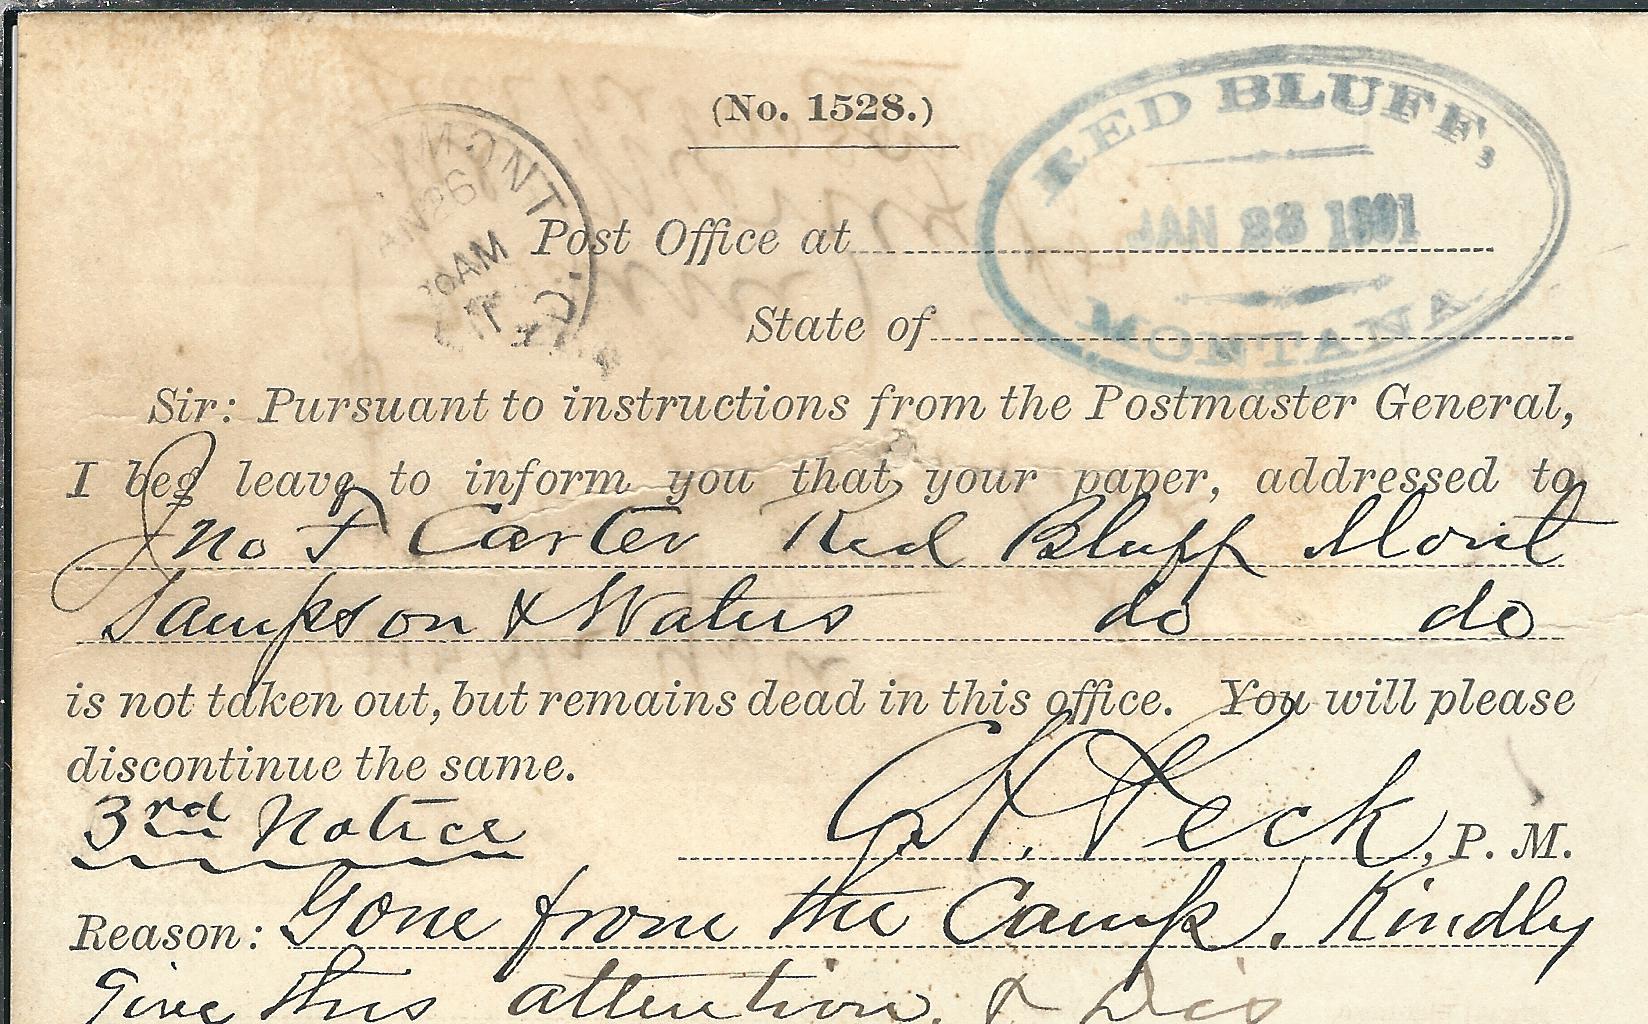 (No. 1528.)
RED BLUFF,
JAN 23 1901
MONTANA
MONT
AN 26
30AM
Post Office at
State of
Sir: Pursuant to instructions from the Postmaster General,
I beg leave to inform you that your paper, addressed to
Jno F Carter Red Bluff Mont
Sampson & Waters do do
is not taken out, but remains dead in this office. You will please
discontinue the same.
3rd Notice
Peck, P. M.
Reason: Gone from the Camp. Kindly
Give this attention. & Dis